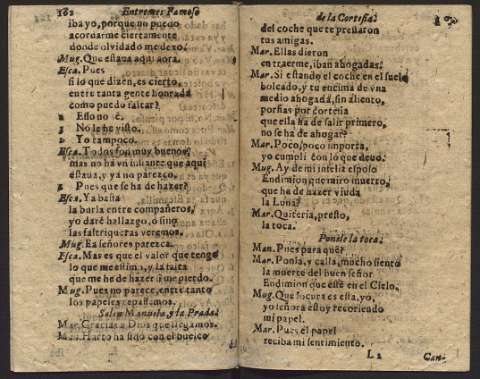 162 Entremes Famoso
iba yo, porque no puedo
acordarme ciertamente
donde olvidado me dexo.
Mug. Que estaua aqui aora.
Esca. Pues
si lo que dizen, es cierto,
entre tanta gente honrada
como puedo faltar?
2 Esso no sè.
3 No le he visto.
2 Yo tampoco.
Esca. Todos son muy buenos,
mas no ha vn instante que aqui
estaua, y ya no parezco.
2 Pues que se ha de hazer?
Esca. Ya basta
la burla entre compañeros,
yo daré hallazgo, o sino
las faltriqueras veremos.
Mug. Ea señores parezca.
Esca. Mas es que el valor que tengo
lo que me estima, y la falta
que me he de hazer si me pierdo.
Mug. Pues no parece, entre tanto
los papeles repassemos.
Salen Manucha, y la Prada.
Mar. Gracias a Dios que llegamos.
Man. Harto ha sido con el buelco
de la Cortesia.
del coche que te preñaron
tus amigas.
Mar. Ellas dieron
en traerme, iban ahogadas.
Mar. Si estando el coche en el suelo
bolcado, y tu encima de vna
medio ahogada, sin aliento,
porfias por cortesia
que ella ha de salir primero,
no se ha de ahogar?
Mar. Poco, poco importa,
yo cumplì con lo que deuo.
Mug. Ay de mi infeliz esposo
Endimion que raro muerto,
que he de hazer viuda
la Luna?
Mar. Quiteria, presto,
la toca.
Ponese la toca.
Man. Pues para què?
Mar. Ponla, y calla, mucho siento
la muerte del buen señor
Endimion que esté en el Cielo.
Mug. Que locura es esta, yo,
yo señora estoy recoriendo
mi papel.
Mar. Pues el papel
reciba mi sentimiento.
L 2 Can-